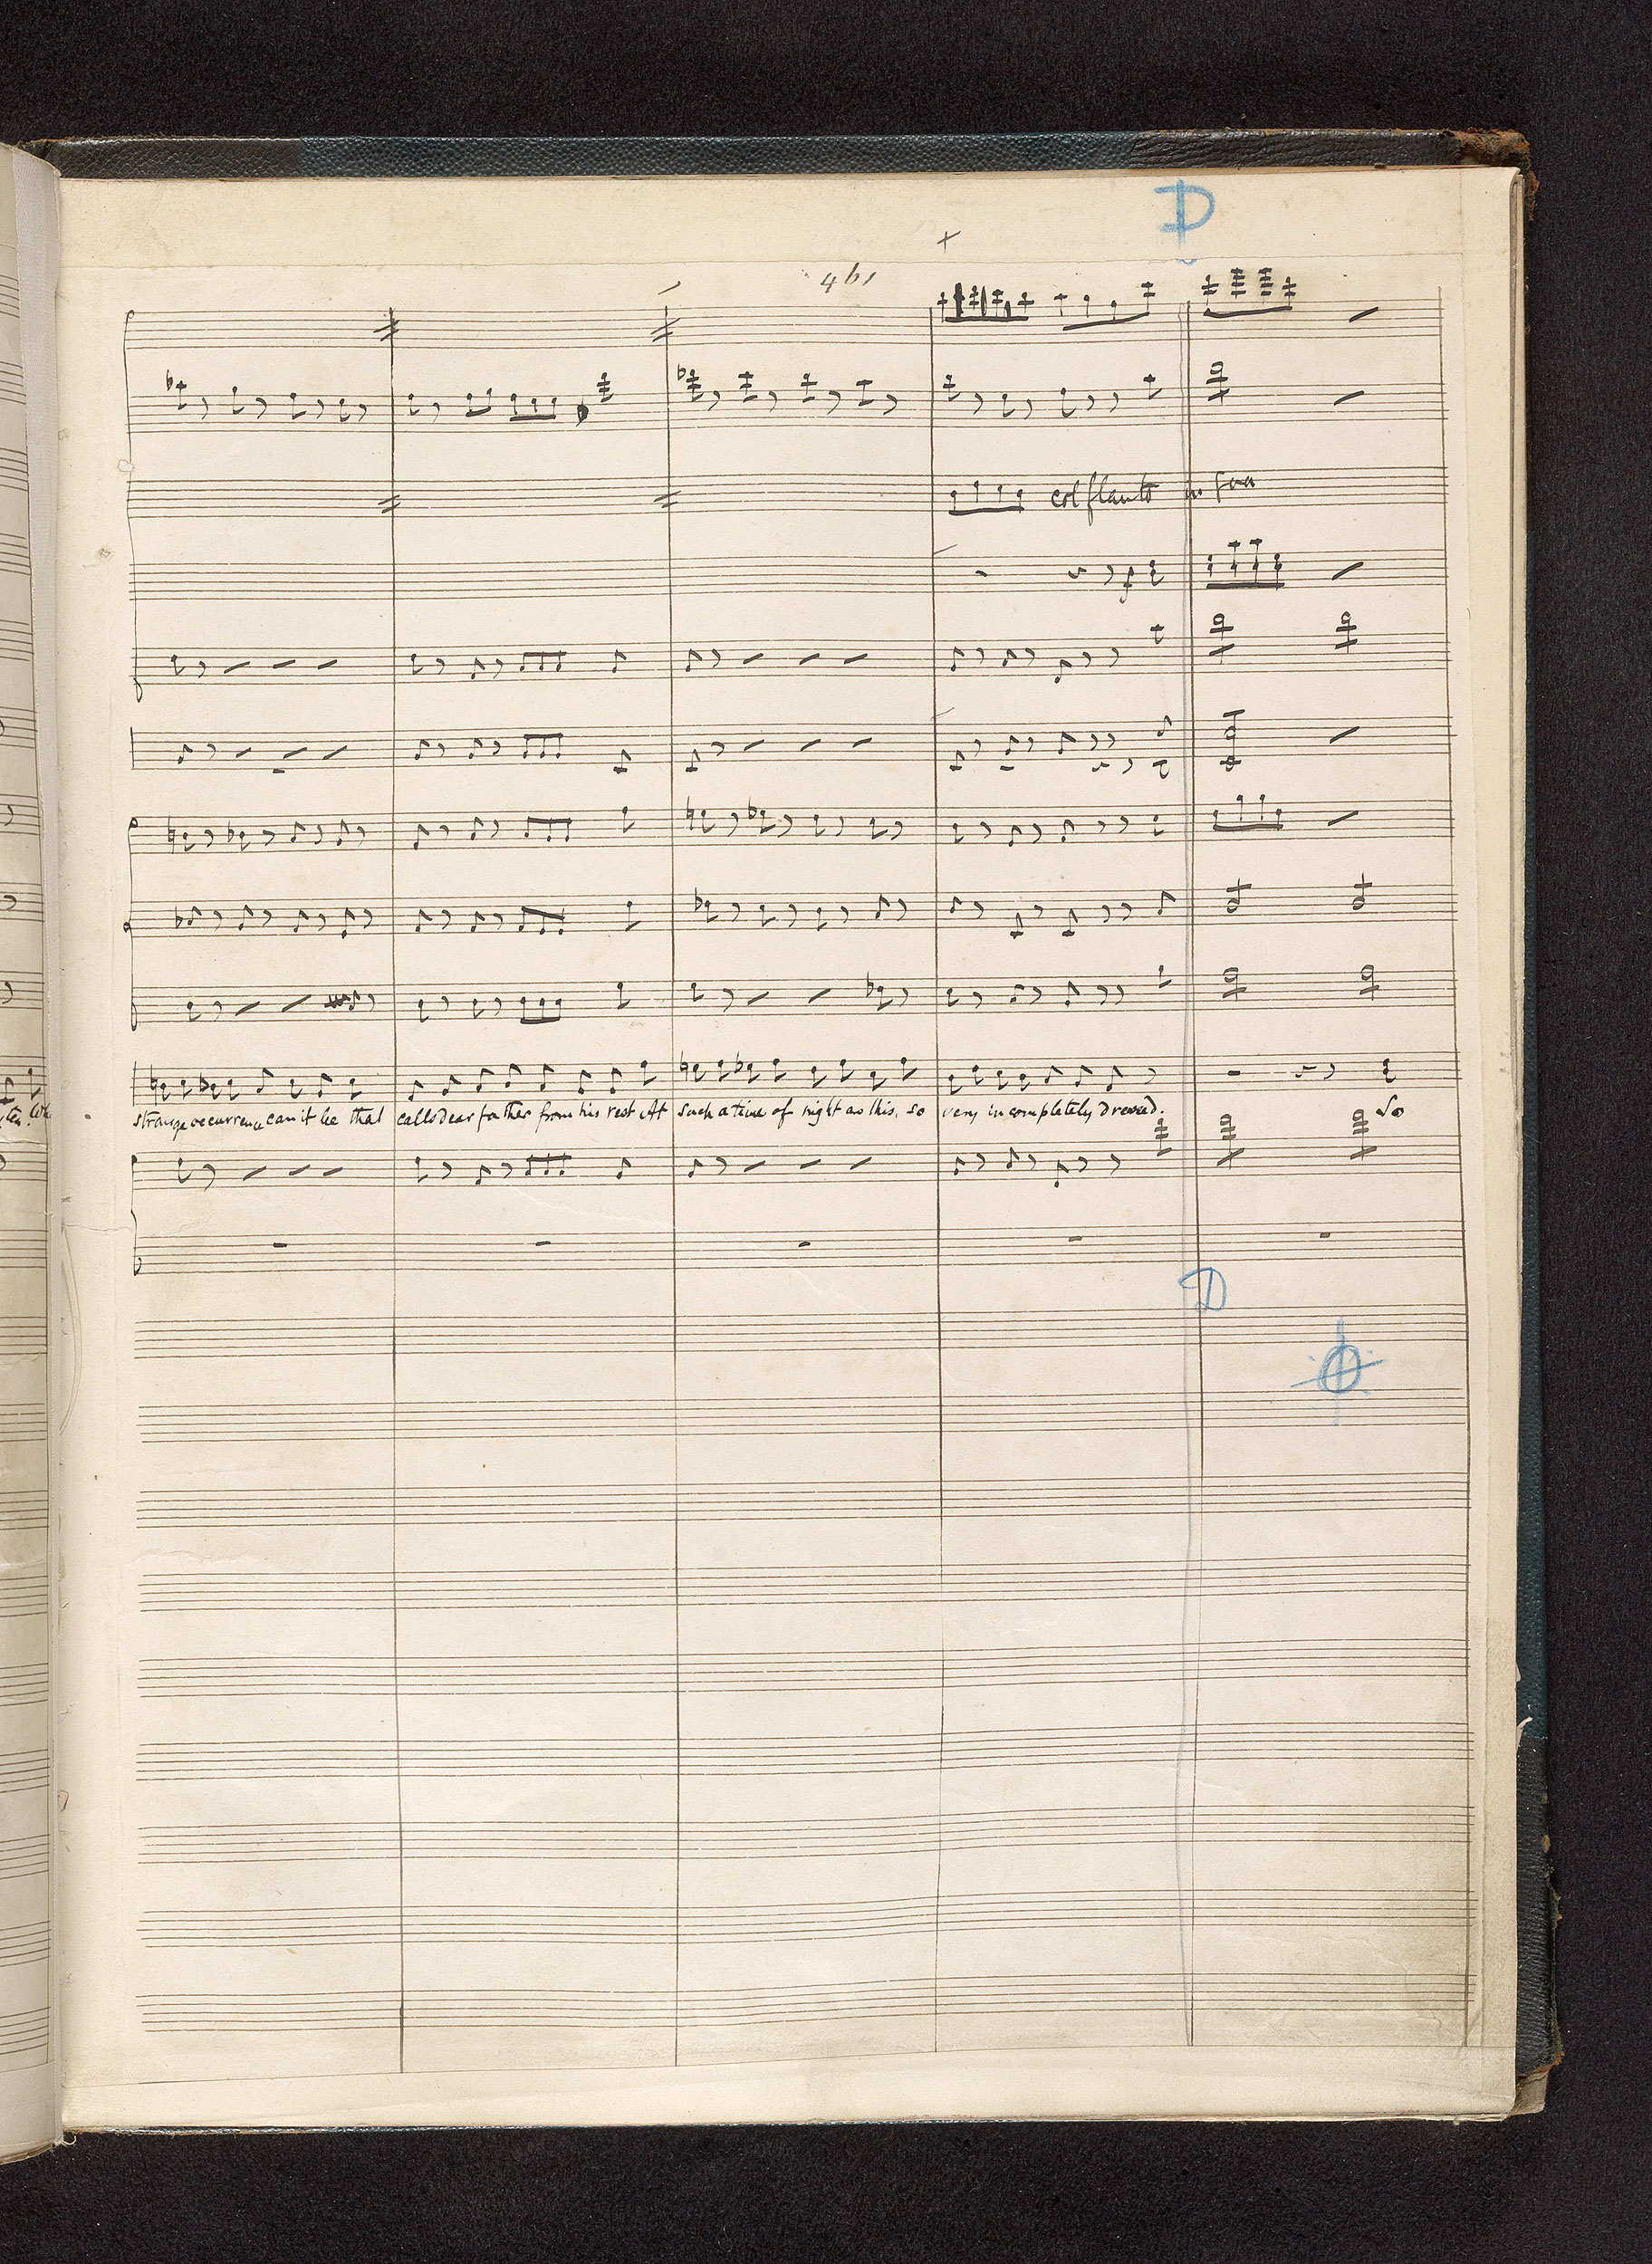 D
461
col flauto in 8va
strange occurrence can it be that calls dear father from his rest At such a time of night as this, so very incompletely dressed. So
D